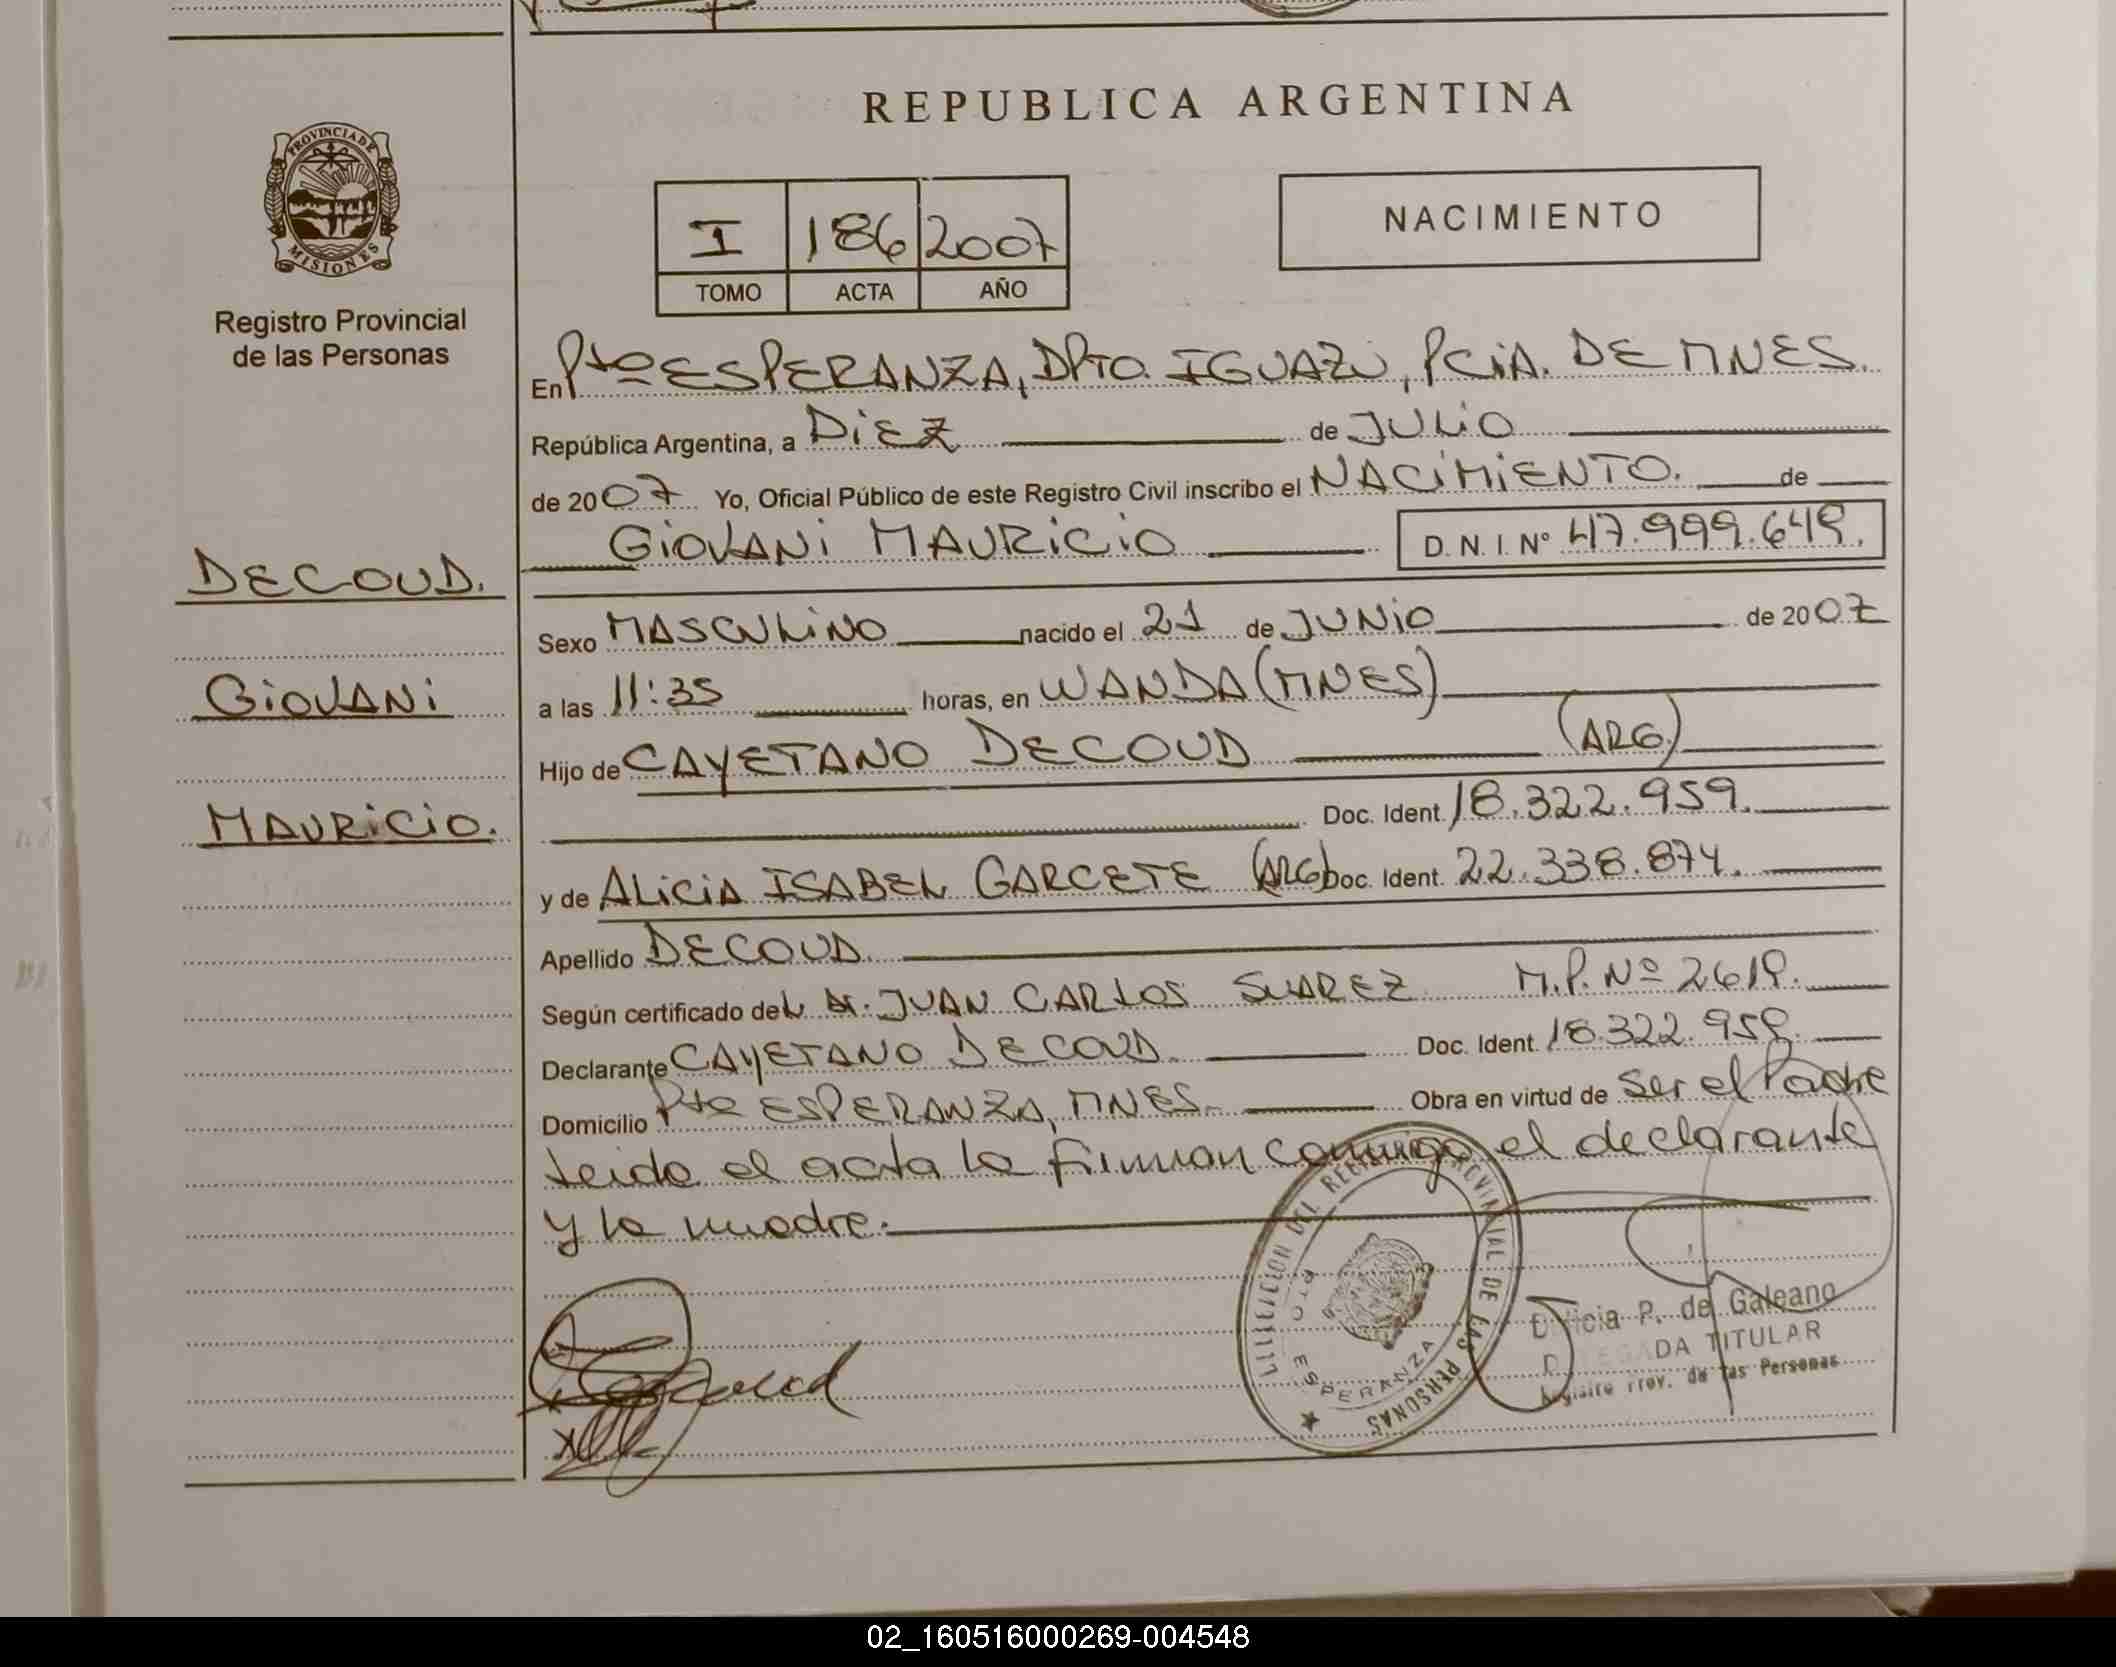 REPUBLICA ARGENTINA
PROVINCIA DE
MISIONES
Registro Provincial
de las Personas
I 186 2007
TOMO ACTA AÑO
NACIMIENTO
En Pto ESPERANZA, DPTO. IGUAZU, PCIA. DE MNES.
República Argentina, a DIEZ de JULIO
de 2007 Yo, Oficial Público de este Registro Civil inscribo el NACIMIENTO. de
GIOVANI MAURICIO D.N.I. Nº 47.999.649.
DECOUD.
Sexo MASCULINO nacido el 21 de JUNIO de 2007
GIOVANI
a las 11:35 horas, en WANDA (MNES)
Hijo de CAYETANO DECOUD (ARG)
MAURICIO.
Doc. Ident. 18.322.959.
y de ALICIA ISABEL GARCETE (ARG) Doc. Ident. 22.338.874.
Apellido DECOUD
Según certificado del Dr. JUAN CARLOS SUAREZ M.P. Nº 2619.
Declarante CAYETANO DECOUD. Doc. Ident. 18.322.959.
Domicilio Pto ESPERANZA, MNES. Obra en virtud de ser el Padre
Leida el acta la firman conmigo el declarante
y la madre.
DEL REGISTRO PROVINCIAL DE LAS PERSONAS
PTO ESPERANZA
P. de Galeano
DELEGADA TITULAR
Registro Prov. de las Personas
02_160516000269-004548